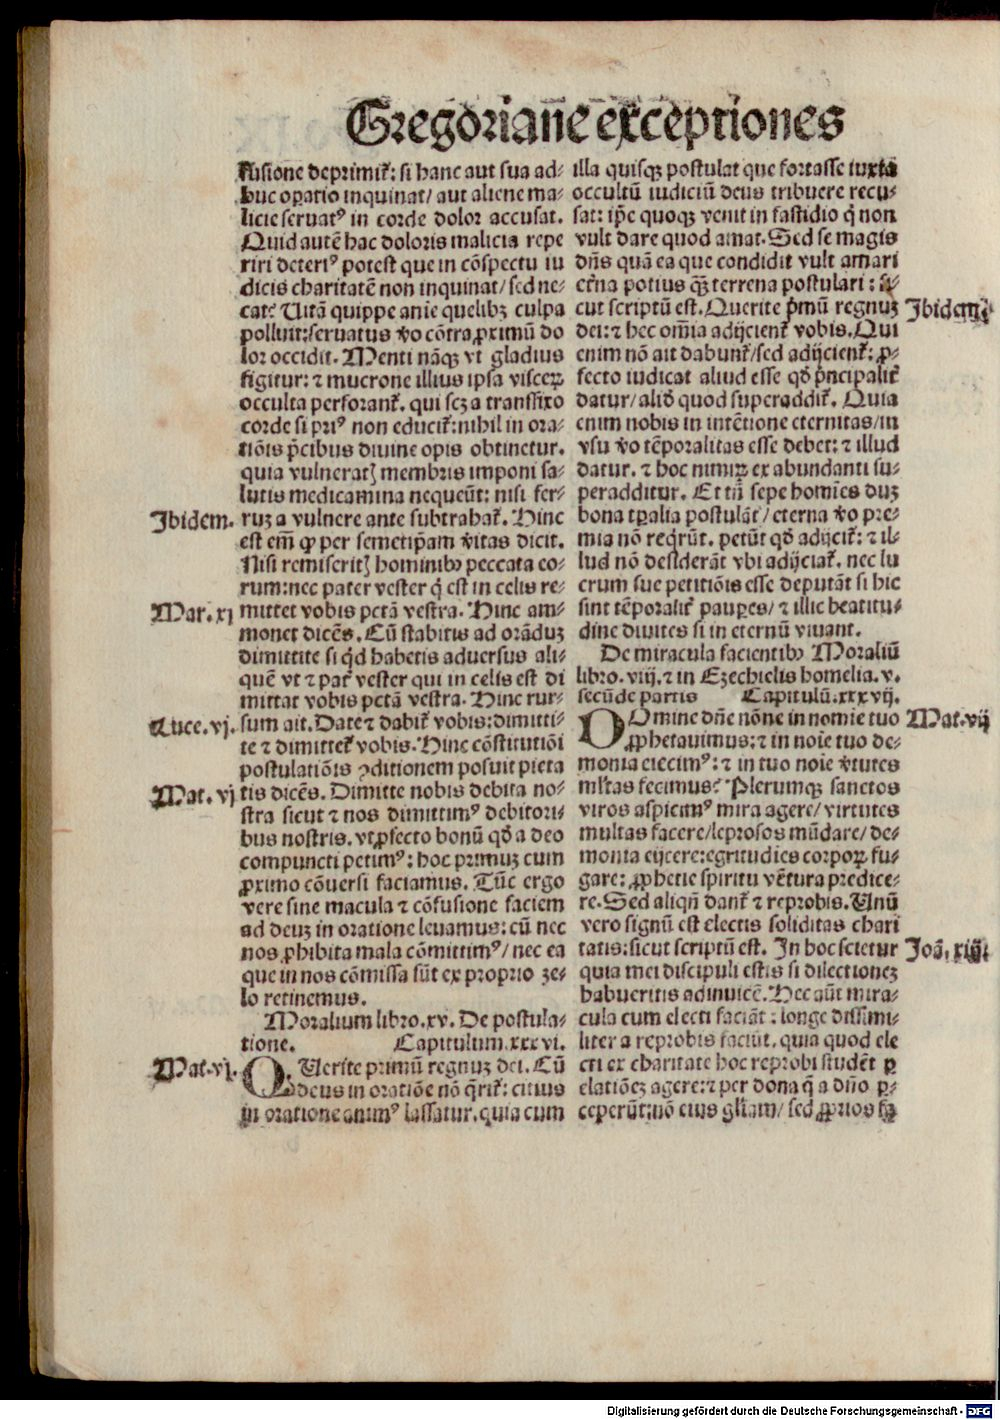 Gregoriane exceptiones
fusione deprimit᷑: si hanc aut sua ad⸗
huc oꝑatio inquinat/ aut aliene ma⸗
licie seruatꝰ in corde dolor accusat.
Quid autē hac doloris malicia repe
riri deteriꝰ potest que in cōspectu iu
dicis charitatē non inquinat/ sed ne⸗
cat? Uitā quippe anie quelibꝫ culpa
polluit: seruatus v̾o cōtra ꝓximū do
lor occidit. Menti nāqꝫ vt gladius
figitur: ⁊ mucrone illius ipsa visceꝝ
occulta perforant᷑. qui scꝫ a transfixo
corde si priꝰ non educit᷑: nihil in ora⸗
tiōis p̄cibus diuine opis obtinetur.
quia vulneratꝭ membris imponi sa⸗
lutis medicamina nequeūt: nisi fer⸗
Ibidem.
ruꝫ a vulnere ante subtrahat᷑. Hinc
est em̄ ꝙ per semetip̄am v̾itas dicit.
Nisi remiseritꝭ hominibꝰ peccata eo⸗
rum: nec pater vester q̇ est in celis re⸗
Mar. xj
mittet vobis pctā vestra. Hinc am⸗
monet dicēs. Cū stabitis ad orāduꝫ
dimittite si qd̓ habetis aduersus ali⸗
quē vt ⁊ pat̓ vester qui in celis est di
mittat vobis pctā vestra. Hinc rur⸗
Luce. vj.
sum ait. Date ⁊ dabit᷑ vobis: dimitti⸗
te ⁊ dimittet᷑ vobis. Hinc cōstitutiōi
postulatiōis ꝯditionem posuit pieta
Mat. vj
tis dicēs. Dimitte nobis debita no⸗
stra sicut ⁊ nos dimittimꝰ debitori⸗
bus nostris. vt ꝓfecto bonū qd̓ a deo
compuncti petimꝰ: hoc primuꝫ cum
ꝓximo cōuersi faciamus. Tūc ergo
vere sine macula ⁊ cōfusione faciem
ad deuꝫ in oratione leuamus: cū nec
nos ꝓhibita mala cōmittimꝰ/ nec ea
que in nos cōmissa sūt ex proprio ze⸗
lo retinemus.
Moralium libro. xv. De postula⸗
tione. Capitulum. xxxvi.
Mat. vj.
QUerite primū regnuꝫ dei. Cū
deus in oratiōe nō q̄rit᷑: citius
in oratione animꝰ lassatur. quia cum
illa quisqꝫ postulat que fortasse iuxta
occultū iudiciū deus tribuere recu⸗
sat: ip̄e quoqꝫ venit in fastidio q̇ non
vult dare quod amat. Sed se magis
dn̄s quā ea que condidit vult amari
et̓na potius qꝫ̄ terrena postulari: si⸗
Ibidem
cut scriptū est. Querite p̓mū regnuꝫ
dei: ⁊ hec om̄ia adijcient᷑ vobis. Qui
enim nō ait dabunt᷑/ sed adijcient᷑: ꝓ⸗
fecto iudicat aliud esse qd̓ p̓ncipalit̓
datur/ aliд quod superaddit᷑. Quia
enim nobis in intētione eternitas/ in
vsu v̾o tēporalitas esse debet: ⁊ illud
datur. ⁊ hoc nimiꝝ ex abundanti su⸗
peradditur. Et tn̄ sepe homīes duꝫ
bona tꝑalia postulāt/ eterna v̾o pre⸗
mia nō reqrūt. petūt qd̓ adijcit᷑: ⁊ il⸗
lud nō desiderāt vbi adijciat᷑. nec lu
crum sue petitiōis esse deputāt si hic
sint tēporalit̓ pauꝑes/ ⁊ illic beatitu⸗
dine diuites si in eternū viuant.
De miracula facientibꝰ Moraliū
libro. viij. ⁊ in Ezechielis homelia. v.
secūde partis Capitulū. xxxvij.
Mat. vij
DOmine dn̄e nōne in nomīe tuo
ꝓphetauimus: ⁊ in noīe tuo de⸗
monia eiecimꝰ: ⁊ in tuo noīe v̾tutes
ml̓tas fecimus? Plerumqꝫ sanctos
viros aspicimꝰ mira agere/ virtutes
multas facere/ leprosos mūdare/ de⸗
monia eijcere: egritudīes corpoꝝ fu⸗
gare: ꝓphetie spiritu vētura predice⸗
re. Sed aliqn̄ dant᷑ ⁊ reprobis. Unū
vero signū est electis soliditas chari
tatis: sicut scriptū est. In hoc scietur
Joā. xiij.
quia mei discipuli estis si dilectionez
habueritis adinuicē. Hec aūt mira⸗
cula cum electi faciāt: longe dissimi⸗
liter a reprobis faciūt. quia quod ele
cti ex charitate hoc reprobi studēt ꝑ
elatiōeꝫ agere: ⁊ per dona q̄ a dn̄o ꝑ⸗
ceperūt: nō eius gl̓iam/ sed ꝓprios
Digitalisierung gefördert durch die Deutsche Forschungsgemeinschaft - DFG